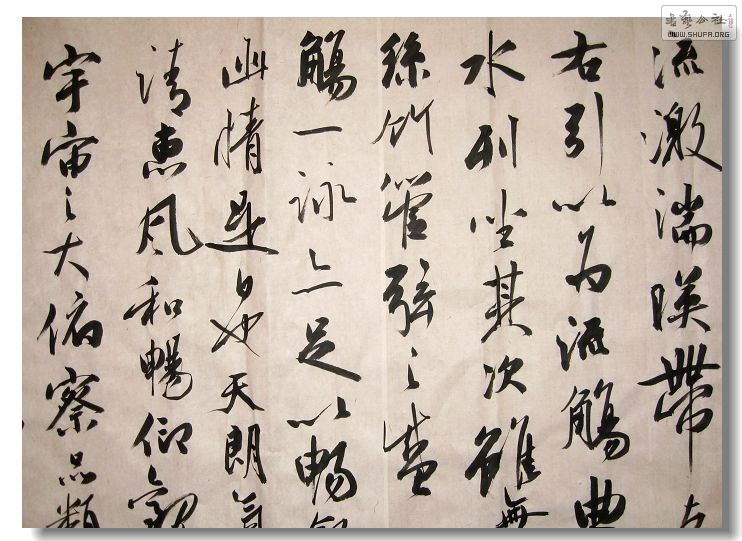 流激湍暎帶左
右引以为流觴曲
水列坐其次雖無
絲竹管弦之盛
觴一詠亦足以暢敘
幽情是日也天朗氣
清惠風和暢仰觀
宇宙之大俯察品類
书艺公社
WWW.SHUFA.ORG